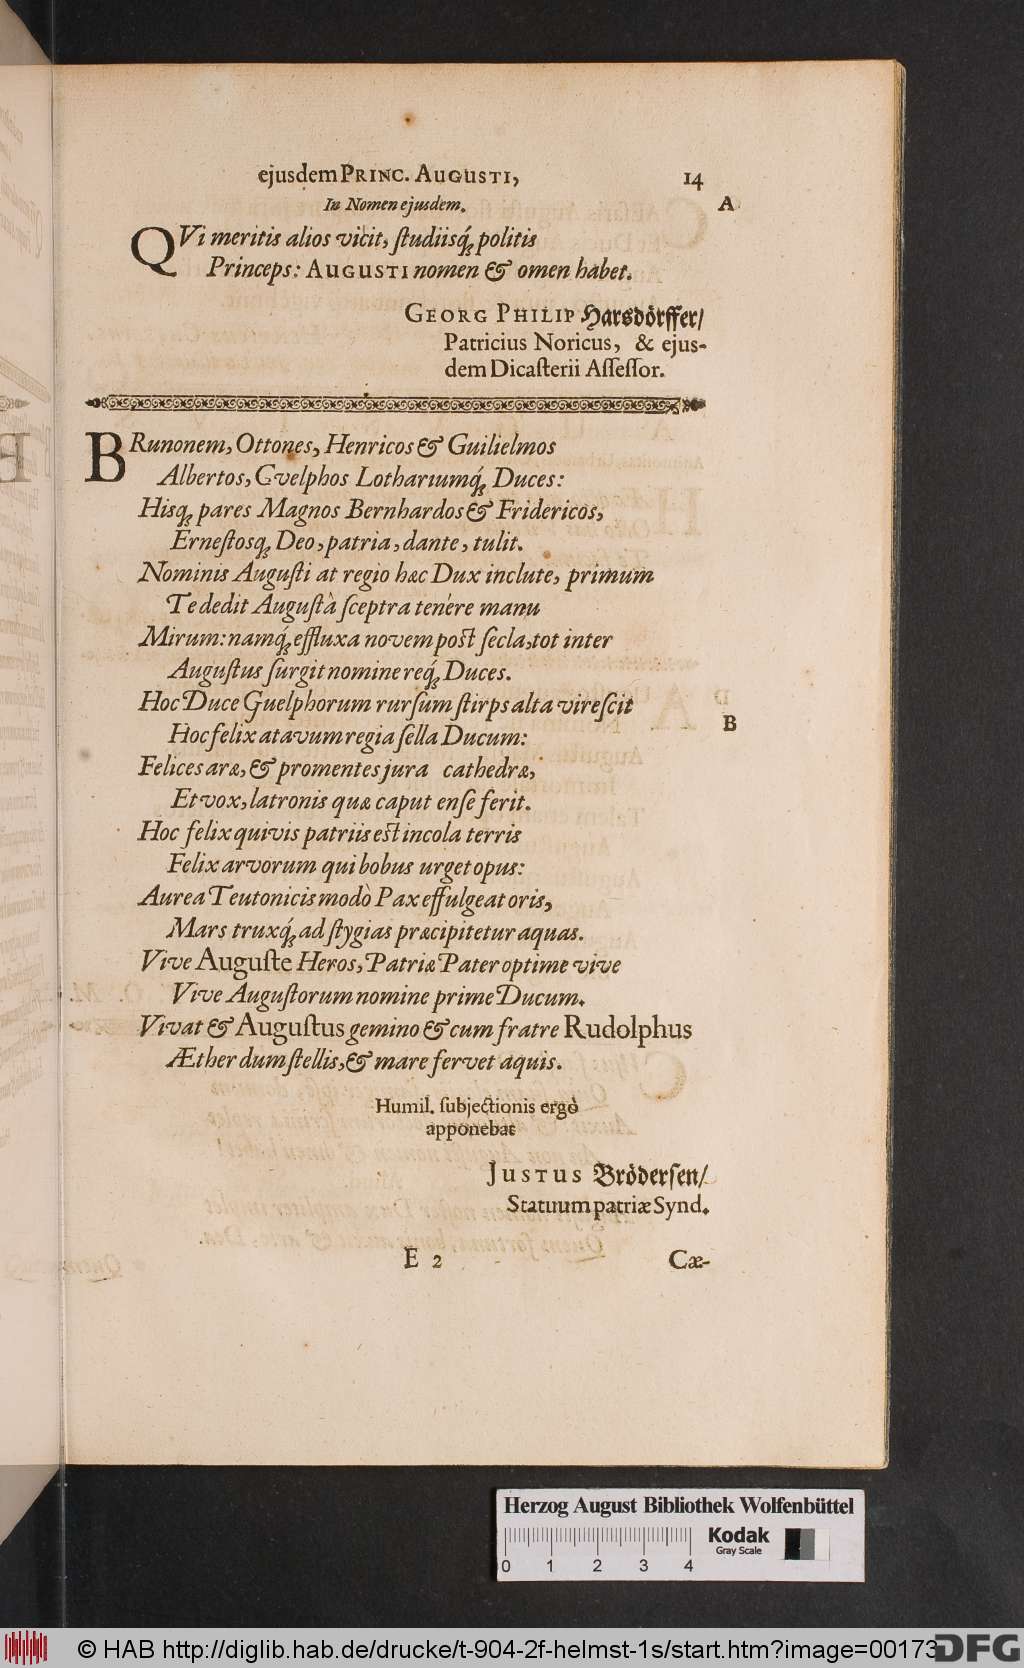 ejusdem PRINC. AUGUSTI, 14
In Nomen ejusdem. A
QVi meritis alios vicit, ſtudiisq́; politis
Princeps: AUGUSTI nomen & omen habet.
GEORG PHILIP Harsdörffer/
Patricius Noricus, & ejus-
dem Dicaſterii Aſſeſſor.
BRunonem, Ottones, Henricos & Guilielmos
Albertos, Gvelphos Lothariumq́; Duces:
Hisq; pares Magnos Bernhardos & Fridericos,
Erneſtosq; Deo, patria, dante, tulit.
Nominis Auguſti at regio hæc Dux inclute, primum
Te dedit Auguſtà ſceptra tenère manu
Mirum: namq́; effluxa novem poſt ſecla, tot inter
Auguſtus ſurgit nomine req́; Duces.
Hoc Duce Guelphorum rurſum ſtirps alta vireſcit
B
Hoc felix atavum regia ſella Ducum:
Felices aræ, & promentes jura cathedræ,
Et vox, latronis quæ caput enſe ferit.
Hoc felix quivis patriis eſt incola terris
Felix arvorum qui bobus urget opus:
Aurea Teutonicis modò Pax effulgeat oris,
Mars truxq́; ad ſtygias præcipitetur aquas.
Vive Auguſte Heros, Patriæ Pater optime vive
Vive Auguſtorum nomine prime Ducum.
Vivat & Auguſtus gemino & cum fratre Rudolphus
Æther dum ſtellis, & mare fervet aquis.
Humil. ſubjectionis ergò
apponebat
JUSTUS Bröderſen/
Statuum patriæ Synd.
E 2 Cæ-
Herzog August Bibliothek Wolfenbüttel
Kodak
Gray Scale
0 1 2 3 4
© HAB http://diglib.hab.de/drucke/t-904-2f-helmst-1s/start.htm?image=00173
DFG